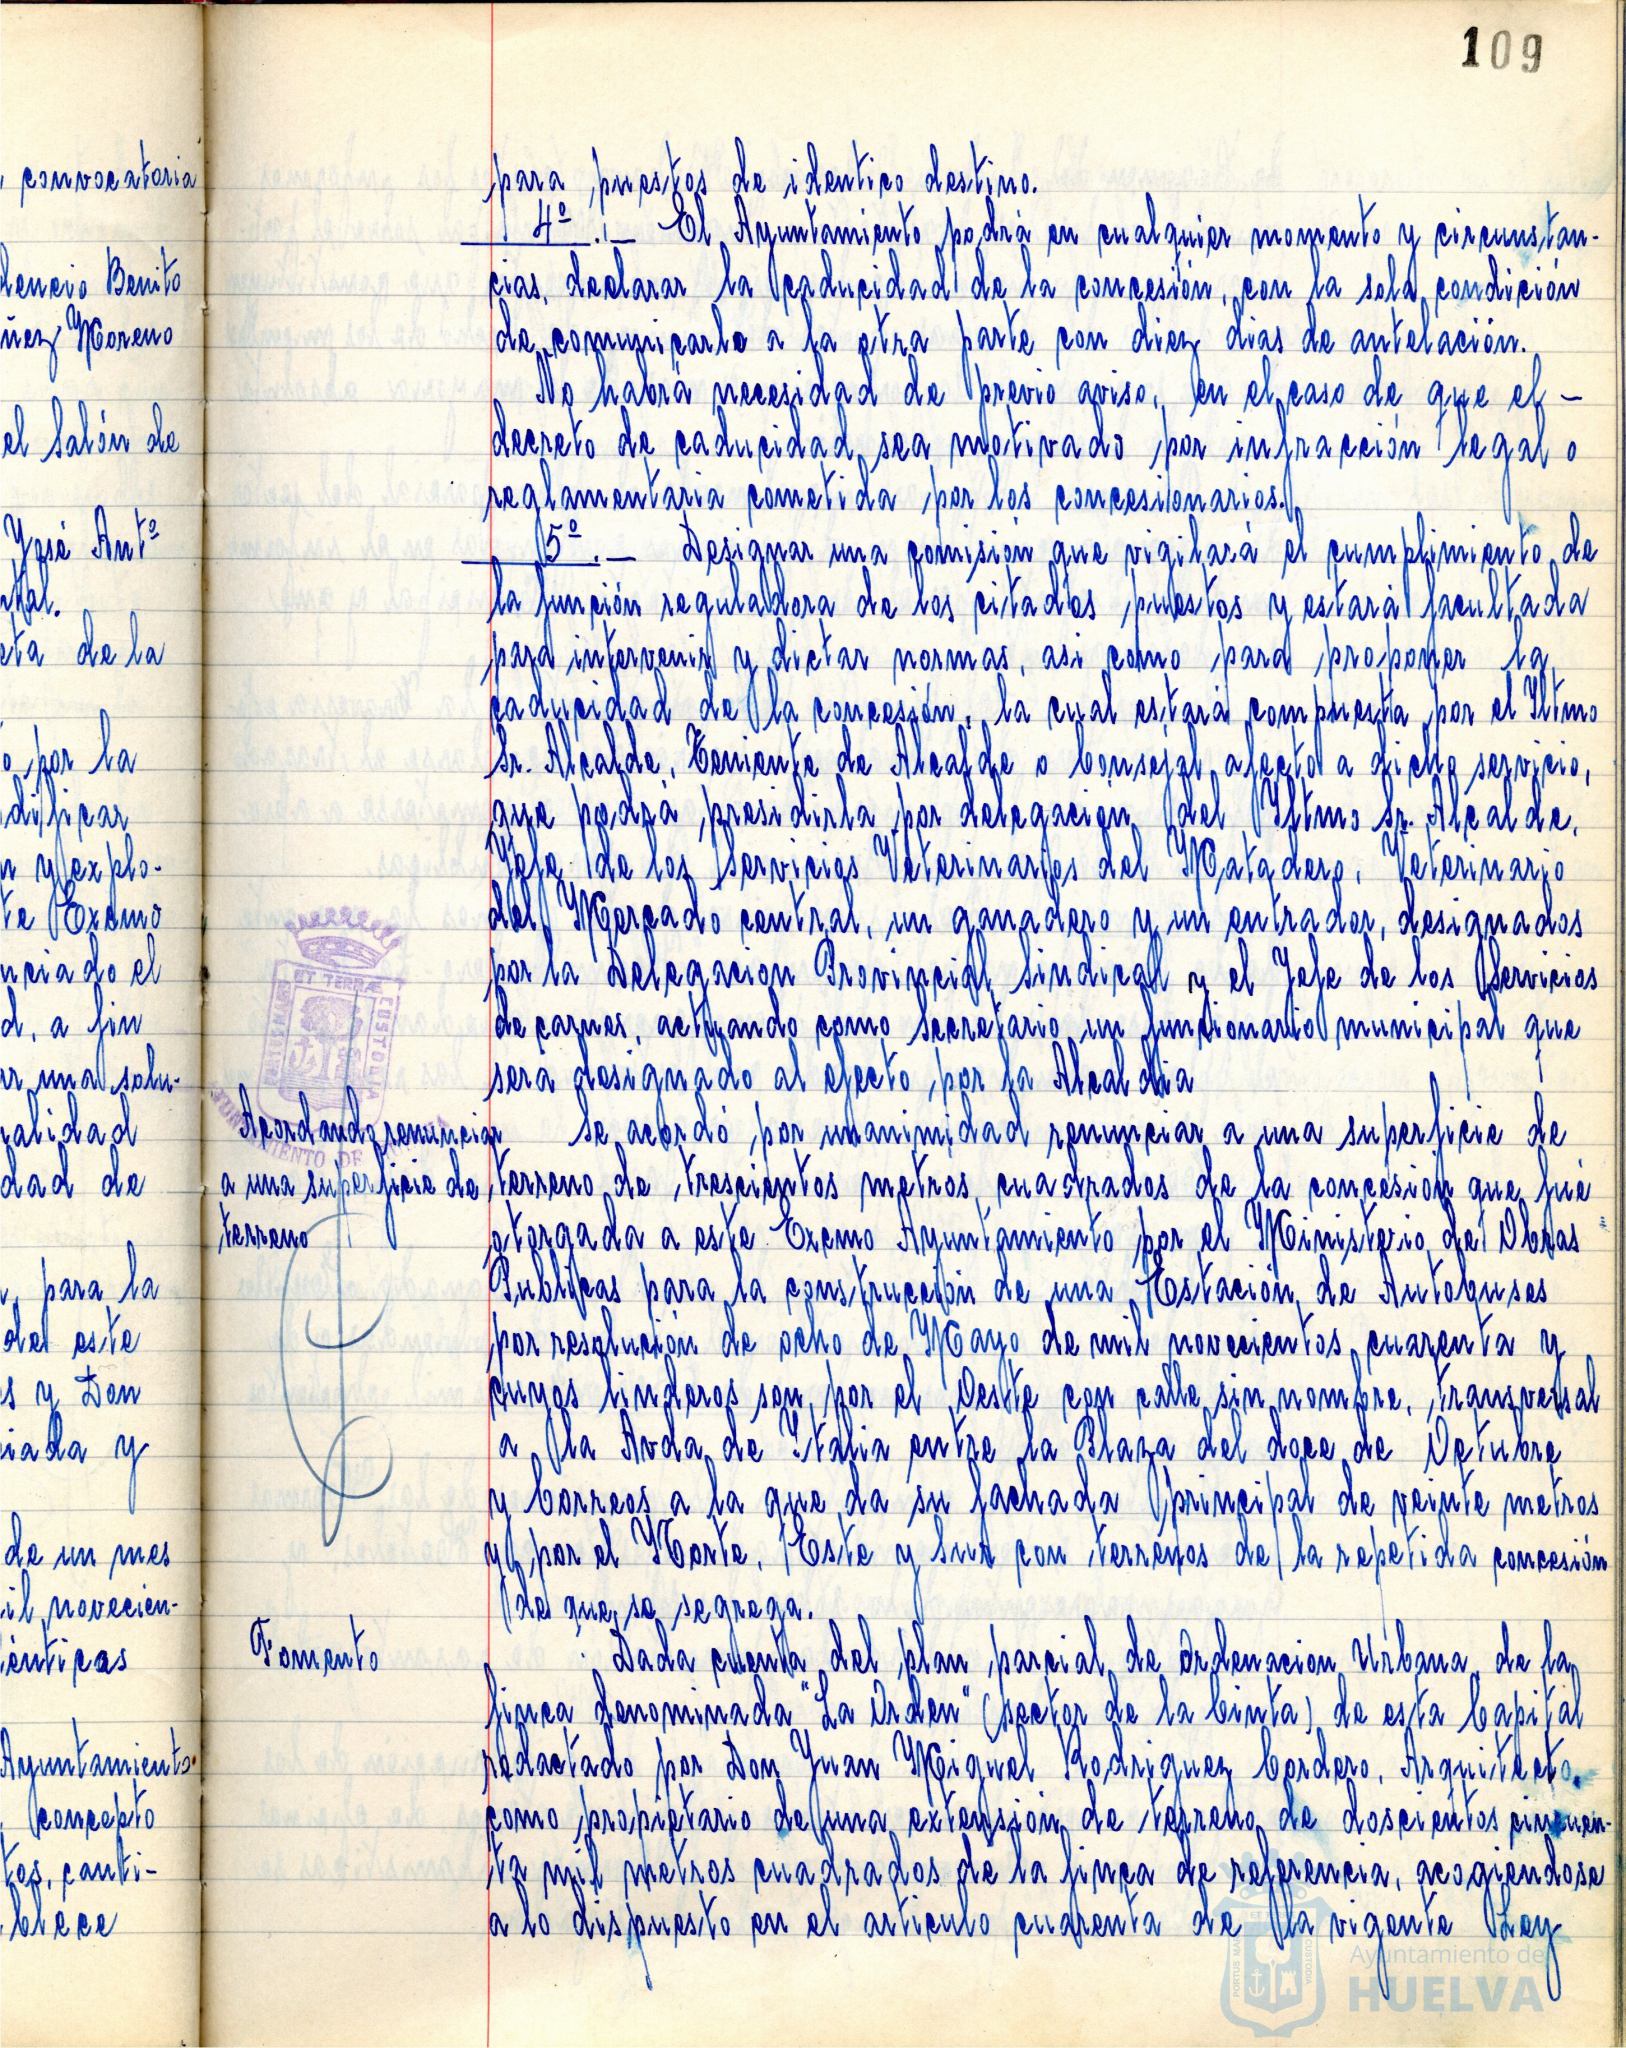 109
, convocatoria
dencio Benito
ñez Moreno
el Salón de
José Antº
ntal.
eta de la
o por la
dificar
n y explo-
te Excmo
nciado el
d, a fin
ar una solu-
ralidad
dad de
n, para la
de este
s y Don
iada y
de un mes
il novecien-
énticas
Ayuntamiento.
, concepto
tos, canti-
blece
para puestos de identico destino.
4º.- El Ayuntamiento podrá en cualquier momento y circunstan-
cias, declarar la caducidad de la concesión, con la sola condición
de comunicarlo a la otra parte con diez dias de antelación.
No habrá necesidad de previo aviso, en el caso de que el -
decreto de caducidad sea motivado por infracción legal o
reglamentaria cometida por los concesionarios.
5º.- Designar una comisión que vigilará el cumplimiento de
la función reguladora de los citados puestos y estará facultada
para intervenir y dictar normas, asi como para proponer la
caducidad de la concesión, la cual estará compuesta por el Iltmo
Sr. Alcalde, Teniente de Alcalde o Consejal afecto a dicho servicio,
que podrá presidirla por delegación del Iltmo Sr. Alcalde,
Jefe de los Servicios Veterinarios del Matadero, Veterinario
del Mercado central, un ganadero y un entrador, designados
por la Delegacion Provincial Sindical y el Jefe de los Servicios
de carnes, actuando como Secretario un funcionario municipal que
será designado al efecto por la Alcaldia
ET TERRAE CUSTODIA
Acordando renunciar
a una superficie de
terreno
Se acordó por unanimidad renunciar a una superficie de
terreno de trescientos metros cuadrados de la concesión que fué
otorgada a este Excmo Ayuntamiento por el Ministerio de Obras
Publicas para la construcción de una Estación de Autobuses
por resolución de ocho de Mayo de mil novecientos cuarenta y
cuyos linderos son por el Oeste con calle sin nombre, transversal
a la Avda de Italia entre la Plaza del doce de Octubre
y Correos a la que da su fachada principal de veinte metros
y por el Norte, Este y Sur con terrenos de la repetida concesión
de que se segrega.
Fomento
Dada cuenta del plan parcial de Ordenacion Urbana de la
finca denominada "La Orden" (sector de la Cinta) de esta Capital
redactado por Don Juan Miguel Rodriguez Cordero, Arquitecto,
como propietario de una extensión de terreno de doscientos cincuen-
ta mil metros cuadrados de la finca de referencia, acogiendose
a lo dispuesto en el articulo cuarenta de la vigente Ley
Ayuntamiento de
HUELVA